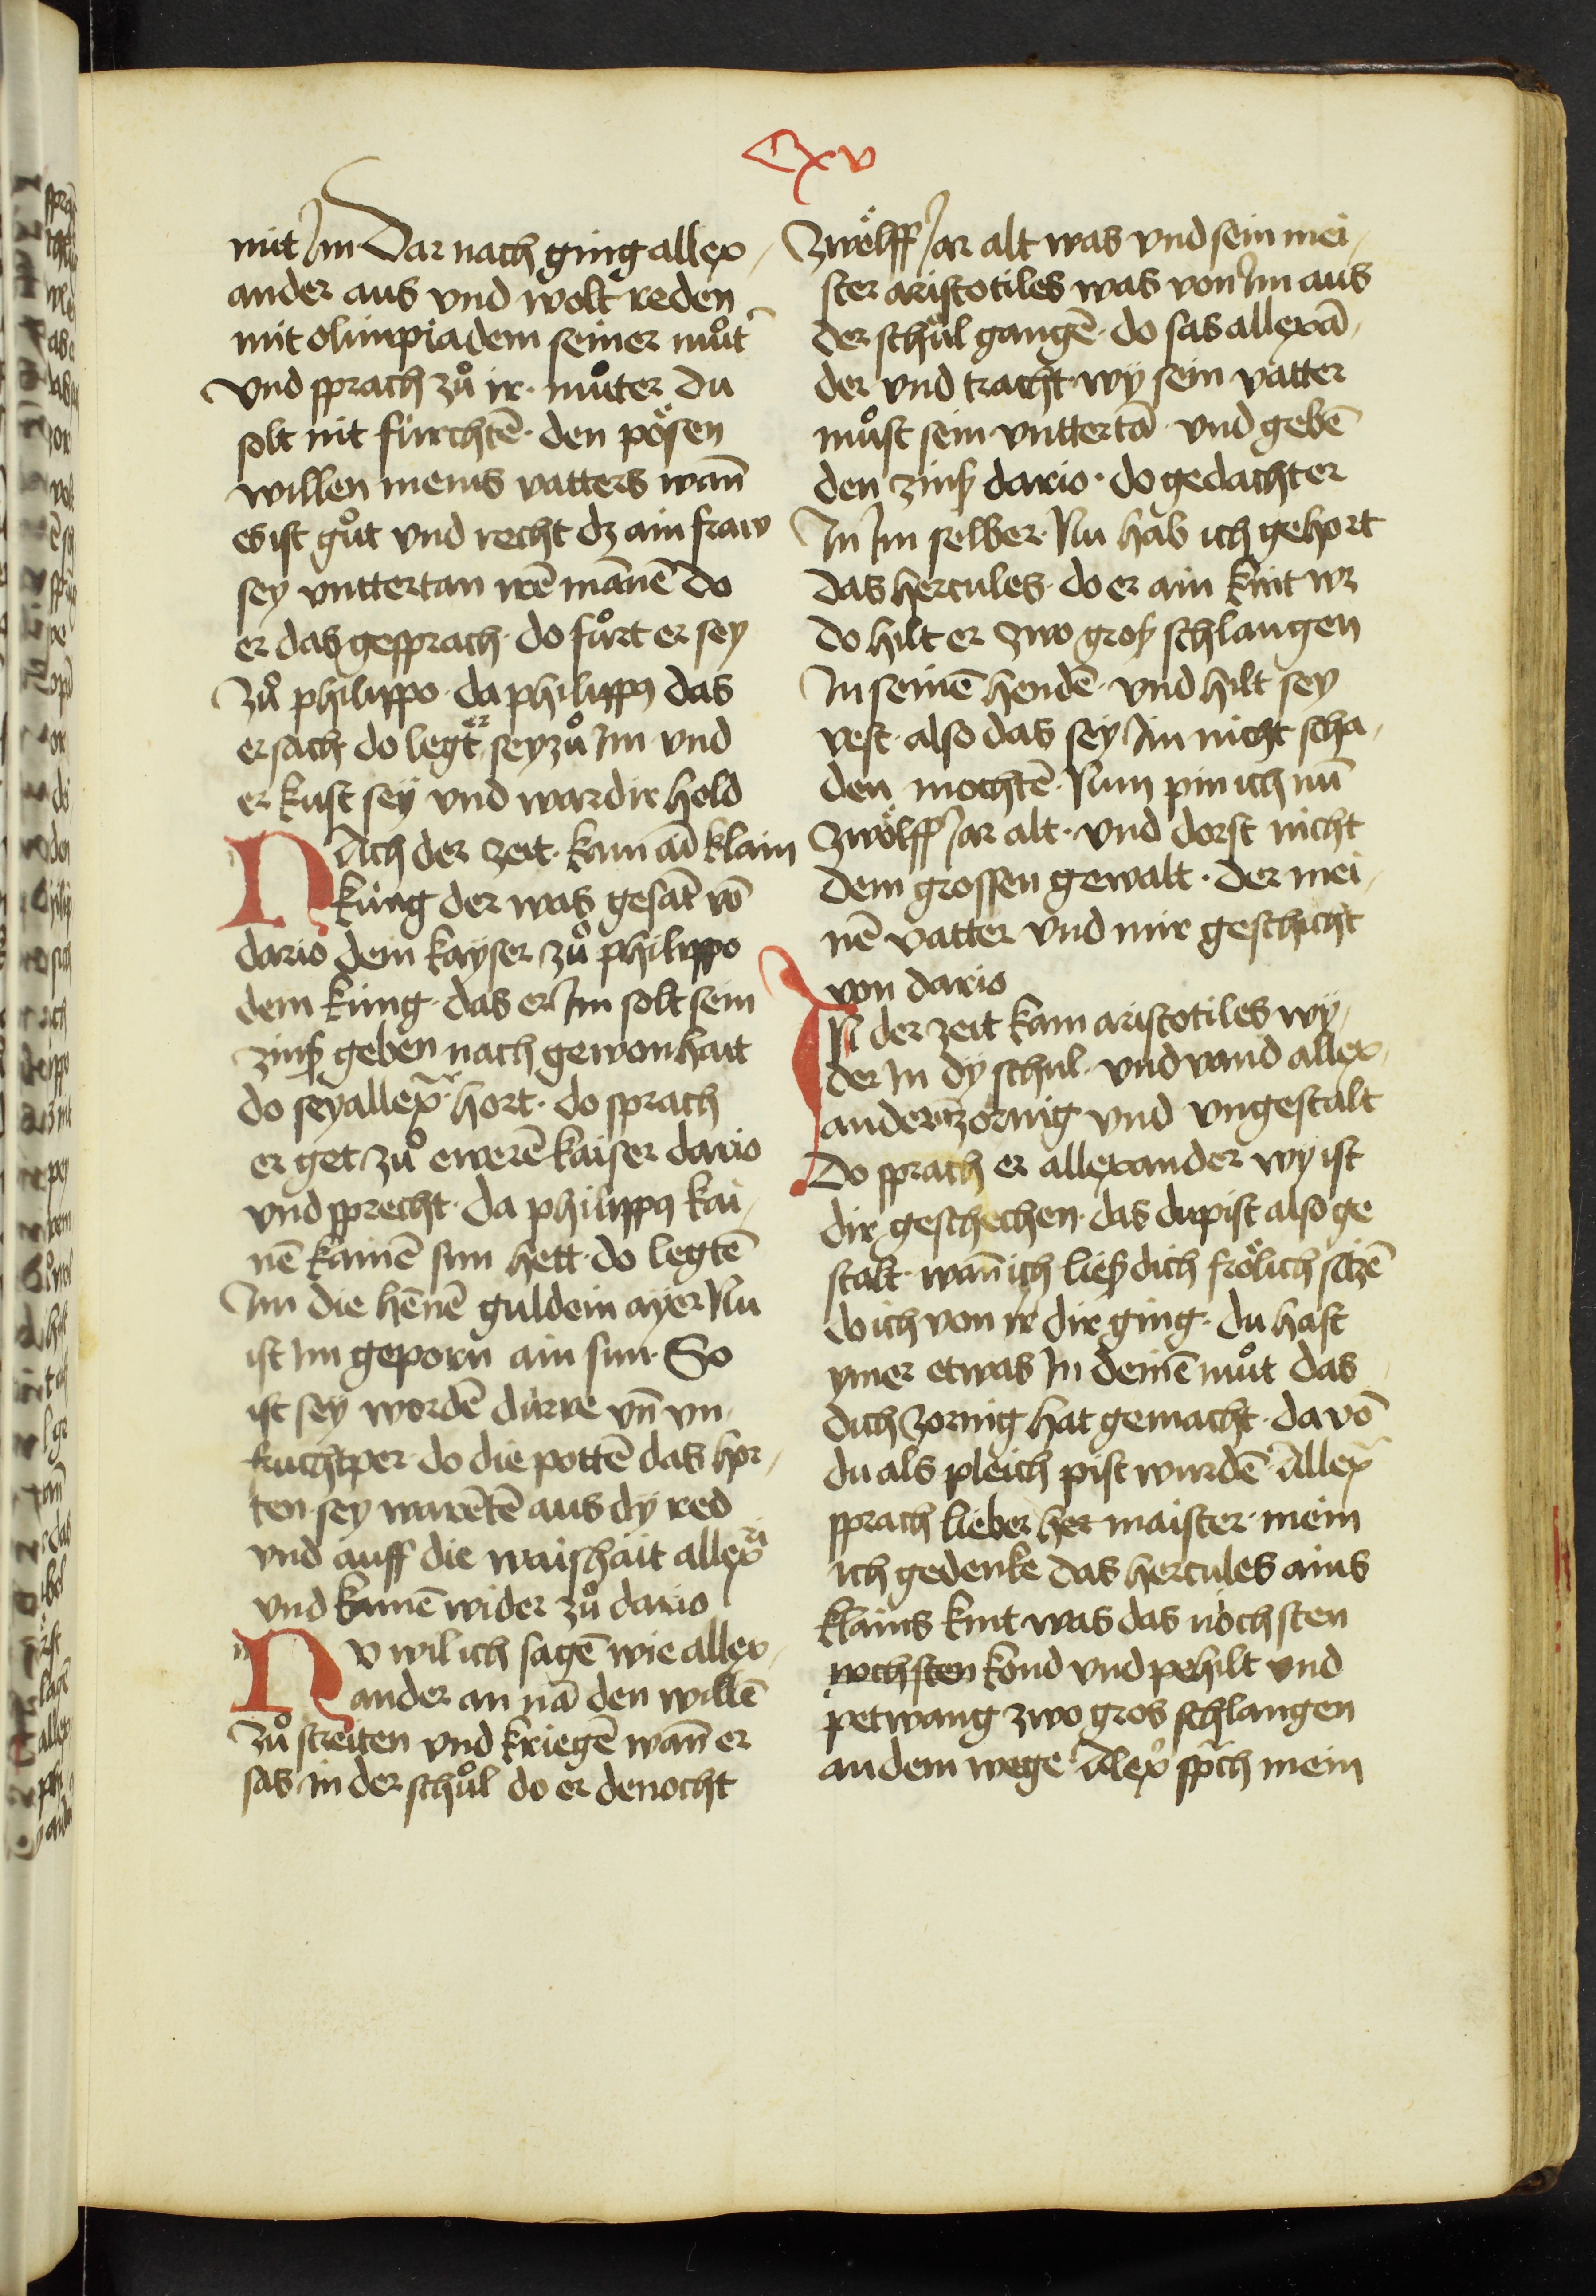 Cxv
mit Im Dar nach ging allex
ander aus vnd wolt reden
mit olimpiadem seiner můt̄
vnd sprach zů ir· můter du
solt nit fürchtē· den pösen
willen meins vatters wan̄
es ist gůt vnd recht dz ain fraw
sey vnttertan irē mānē do
er das gesprach· do fůrt er sey
zů philippo· da philippꝰ das
ersach do legt er sey zů Im vnd
er kust seÿ vnd ward ir hold
NAch der zeit· kam ai klain
küng der was gesāt vō
dario dem kayser zů philippo
dem küng· das er Im solt sein
zinß geben nach gewonhait
do sey allex̄ hort· do sprach
er get zů ewerē kaiser dario
vnd sprecht· da philippꝰ kai
nē kainē sun hett· do legtē
Im die hēnē guldein aÿer Nu
ist Im geporn̄ ain sun· So
ist seÿ wordē dürre vn̄ vn
fruchtper· do die pottē das hor
ten sey warētē aus dÿ red
vnd auff die waishait allexri
vnd kamē wider zů dario
NV wil ich sagē wie allex
ander an nā den willē
zů streiten vnd kriegē wan̄ er
sas in der schůl do er denocht
zwölff Jar alt was vnd sein mei
ster aristotiles was von Im aus
der schůl gangē· do sas allexā
der vnd tracht· wÿ sein vatter
můst sein vnttertā· vnd gebē
den zinß dario· do gedacht er
In Im selber· Nu hab ich gehort
das hercules· do er ain kint wz
do hilt er zwo groß schlangen
In seinē hendē· vnd hilt sey
vest· also das sey Im nicht scha
den mochtē· Nun pin ich nū
zwölff Jar alt· vnd dorst nicht
dem grossen gewalt· der mei
nē vatter vnd mir geschicht
von dario
IN der zeit kam aristotiles wÿ
der In dÿ schul· vnd vand allex
andern zornig vnd vngestalt
Do sprach er allexander wÿ ist
dir geschechen· das du pist also ge
stalt· wan̄ ich ließ dich frölich sitzē
do ich von ir dir ging· du hast
ymer etwas In deinē můt das
dich zornig hat gemacht· da vō
du als pleich pist wurdē· Allex̄
sprach lieber her maister· mein
ich gedenke das hercules ains
klains kint was das nöchsten
wchsten kond vnd pehilt vnd
petwang zwo gros schlangen
an dem wege· Alex̄ sp̄ch mein